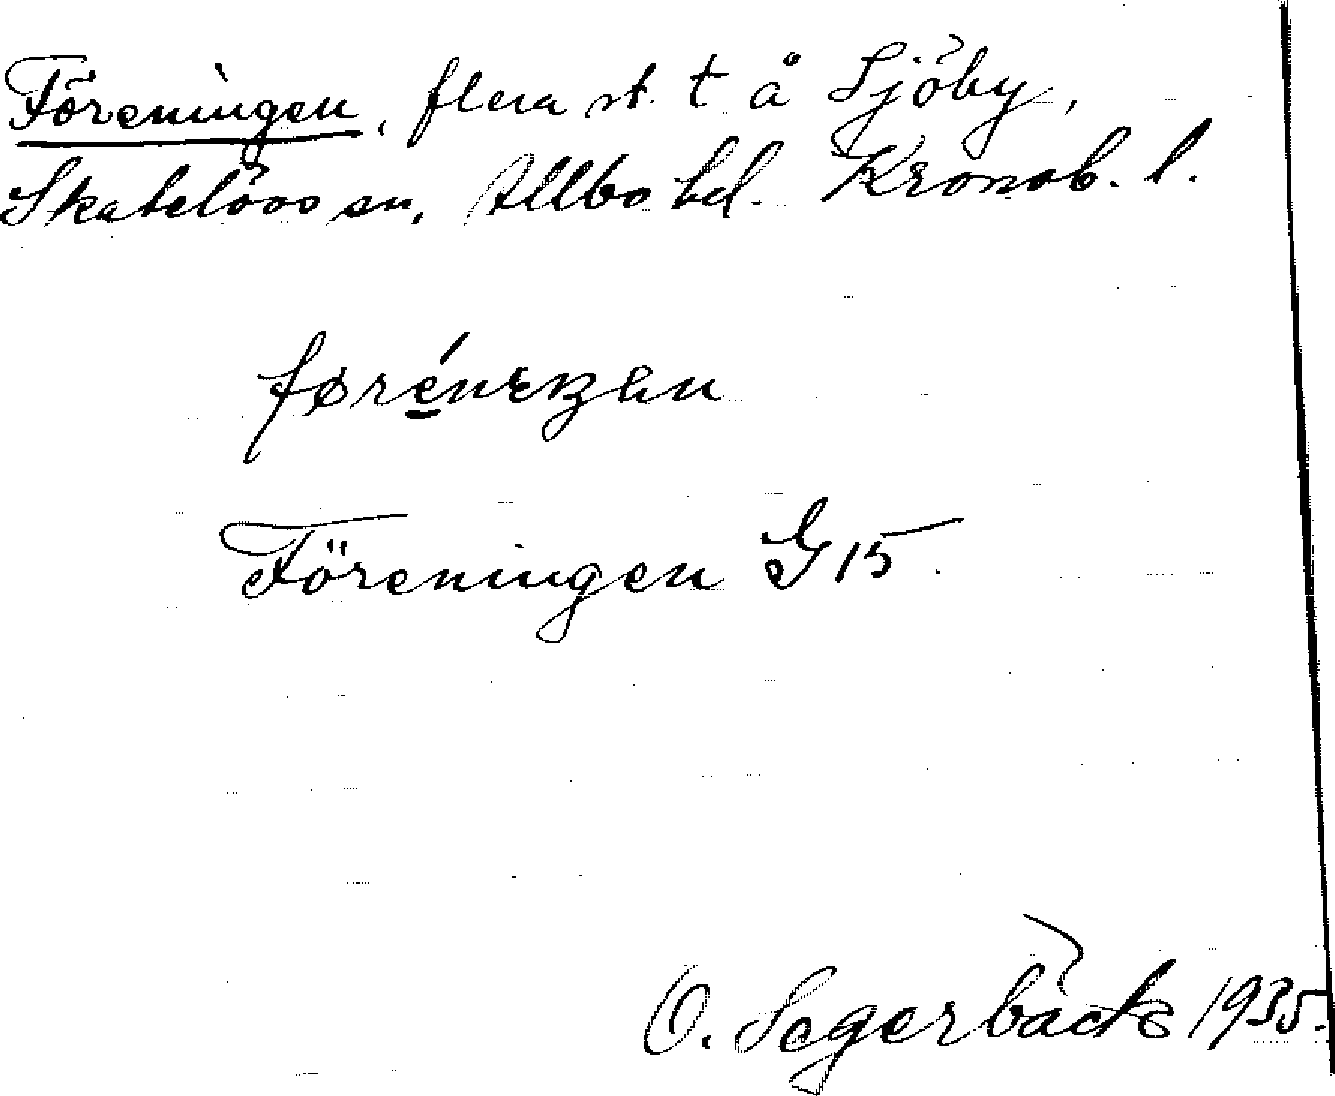 Föreningen, flera st. t å Sjöby,
Skatelövs sn, Allbo hd. Kronob. l.
førénɩŋən
Föreningen G 15.
O. Segerbäck 1935.